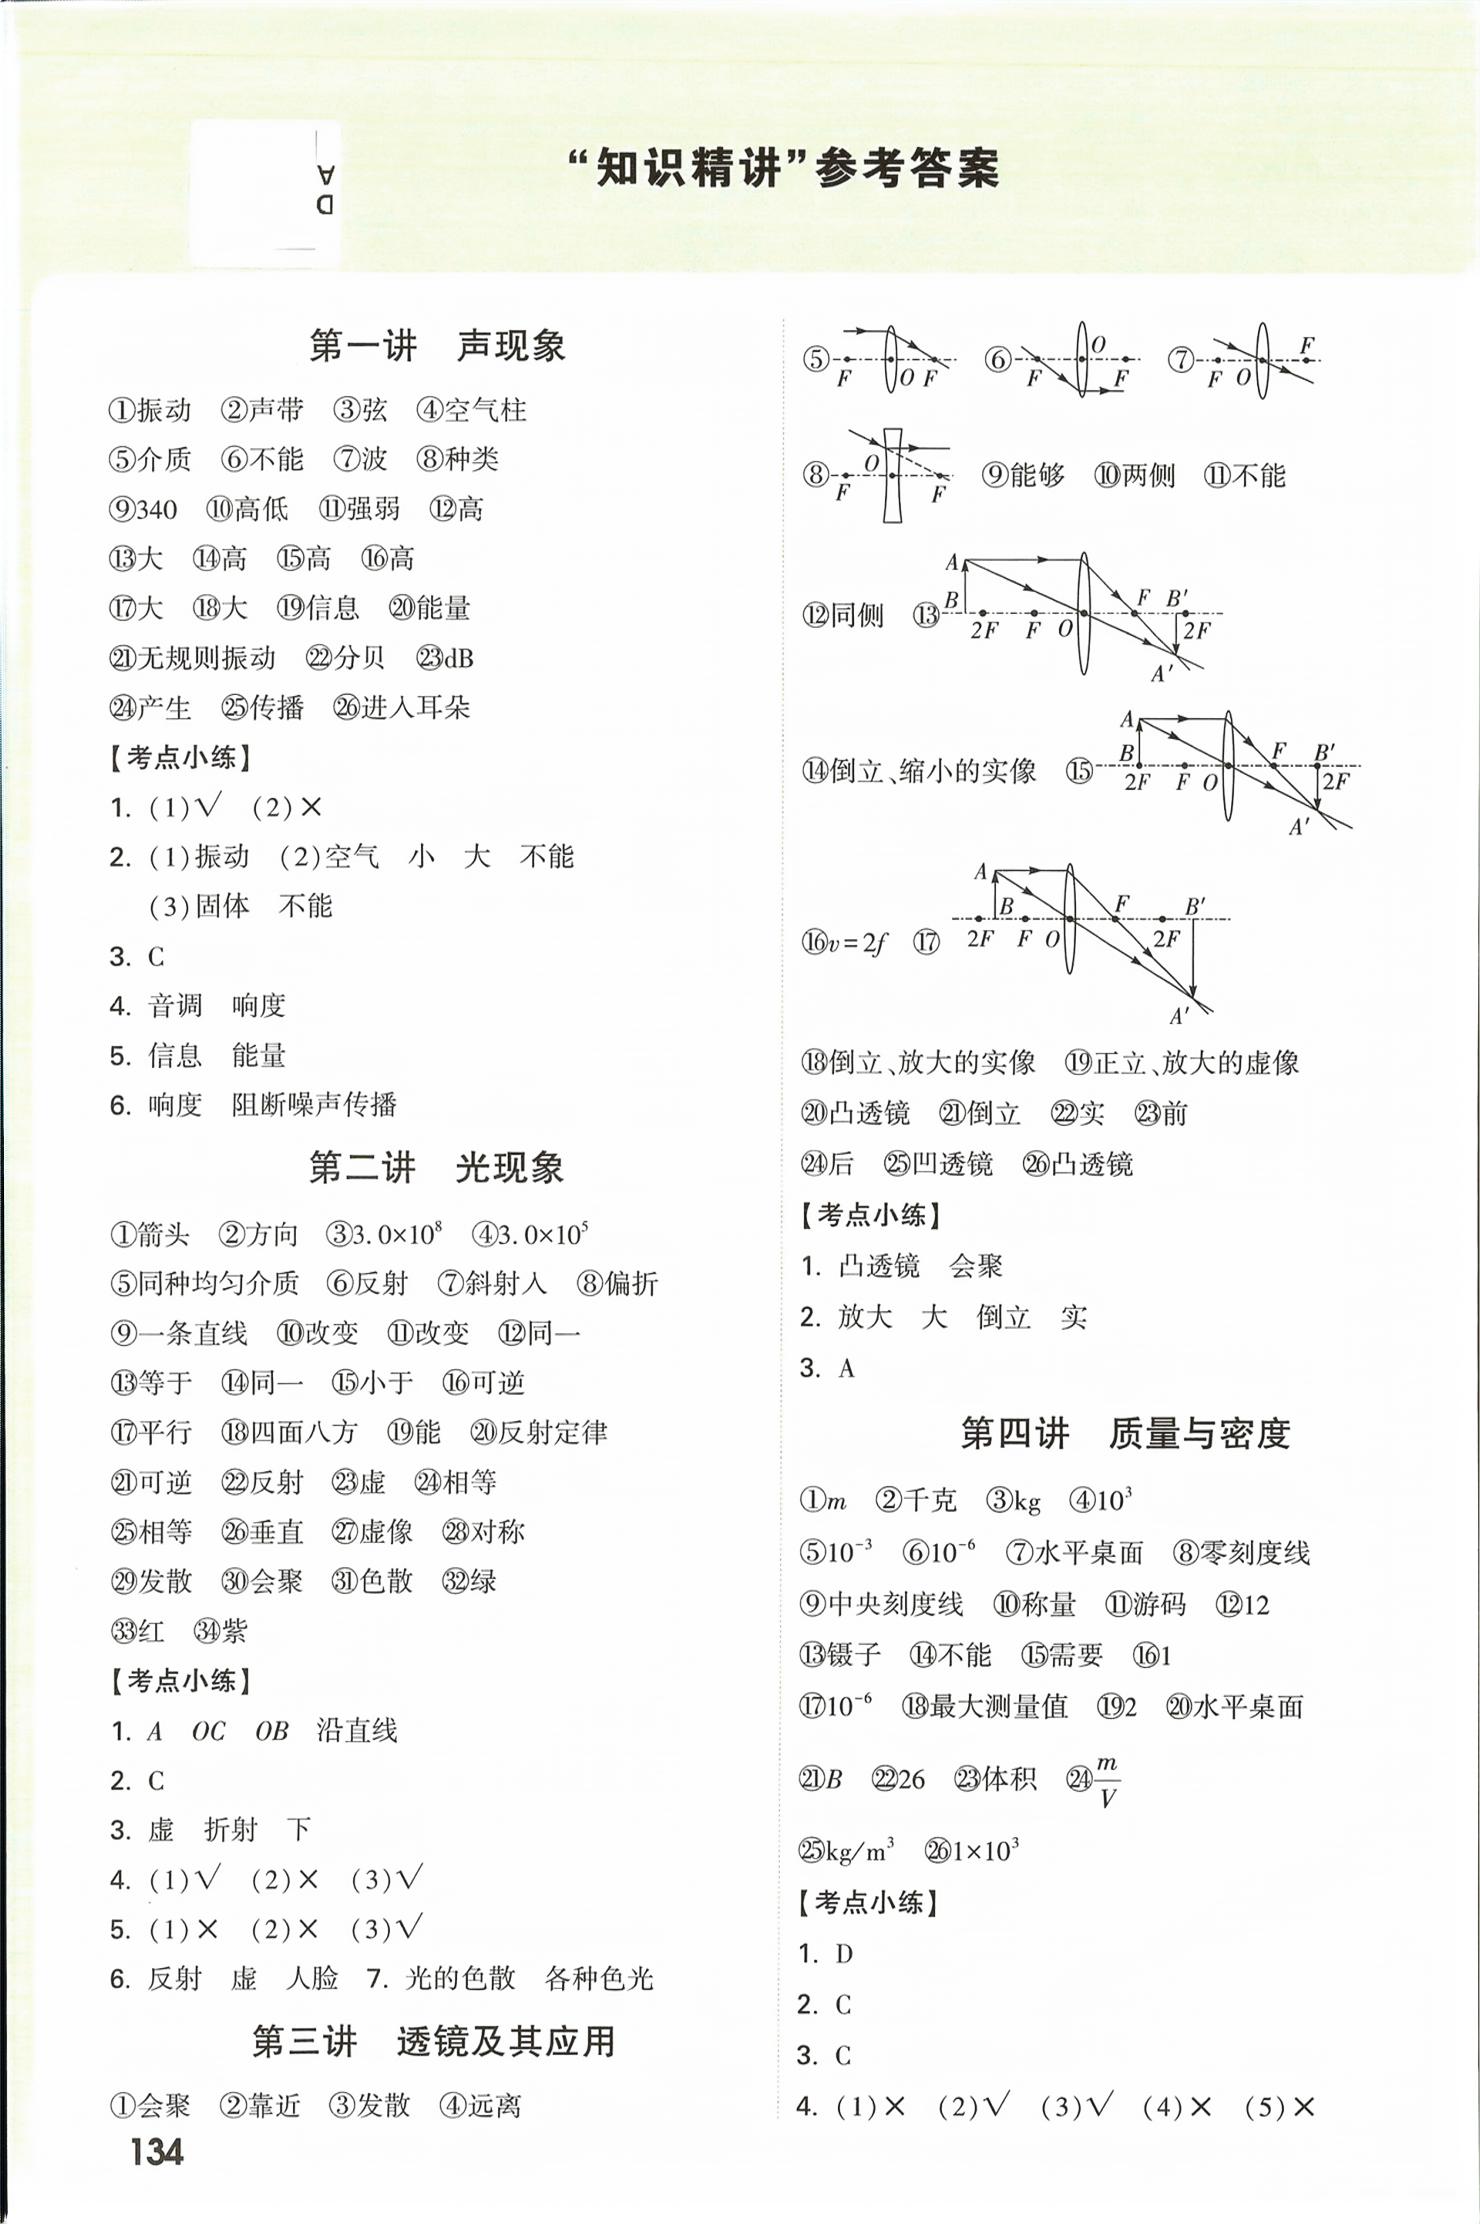 “知识精讲”参考答案
D A
第一讲 声现象
①振动 ②声带 ③弦 ④空气柱
⑤介质 ⑥不能 ⑦波 ⑧种类
⑨340 ⑩高低 ⑪强弱 ⑫高
⑬大 ⑭高 ⑮高 ⑯高
⑰大 ⑱大 ⑲信息 ⑳能量
㉑无规则振动 ㉒分贝 ㉓dB
㉔产生 ㉕传播 ㉖进入耳朵
【考点小练】
1. (1)√ (2)×
2. (1)振动 (2)空气 小 大 不能
(3)固体 不能
3. C
4. 音调 响度
5. 信息 能量
6. 响度 阻断噪声传播
第二讲 光现象
①箭头 ②方向 ③3.0×10⁸ ④3.0×10⁵
⑤同种均匀介质 ⑥反射 ⑦斜射入 ⑧偏折
⑨一条直线 ⑩改变 ⑪改变 ⑫同一
⑬等于 ⑭同一 ⑮小于 ⑯可逆
⑰平行 ⑱四面八方 ⑲能 ⑳反射定律
㉑可逆 ㉒反射 ㉓虚 ㉔相等
㉕相等 ㉖垂直 ㉗虚像 ㉘对称
㉙发散 ㉚会聚 ㉛色散 ㉜绿
㉝红 ㉞紫
【考点小练】
1. A OC OB 沿直线
2. C
3. 虚 折射 下
4. (1)√ (2)× (3)√
5. (1)× (2)× (3)√
6. 反射 虚 人脸 7. 光的色散 各种色光
第三讲 透镜及其应用
①会聚 ②靠近 ③发散 ④远离
134
⑤ F O F ⑥ F O F ⑦ F O F
⑧ F O F ⑨能够 ⑩两侧 ⑪不能
⑫同侧 ⑬ A B 2F F O F B′ 2F A′
⑭倒立、缩小的实像 ⑮ A B 2F F O F B′ 2F A′
⑯v=2f ⑰ A B 2F F O F 2F B′ A′
⑱倒立、放大的实像 ⑲正立、放大的虚像
⑳凸透镜 ㉑倒立 ㉒实 ㉓前
㉔后 ㉕凹透镜 ㉖凸透镜
【考点小练】
1. 凸透镜 会聚
2. 放大 大 倒立 实
3. A
第四讲 质量与密度
①m ②千克 ③kg ④10³
⑤10⁻³ ⑥10⁻⁶ ⑦水平桌面 ⑧零刻度线
⑨中央刻度线 ⑩称量 ⑪游码 ⑫12
⑬镊子 ⑭不能 ⑮需要 ⑯1
⑰10⁻⁶ ⑱最大测量值 ⑲2 ⑳水平桌面
㉑B ㉒26 ㉓体积 ㉔m/V
㉕kg/m³ ㉖1×10³
【考点小练】
1. D
2. C
3. C
4. (1)× (2)√ (3)√ (4)× (5)×